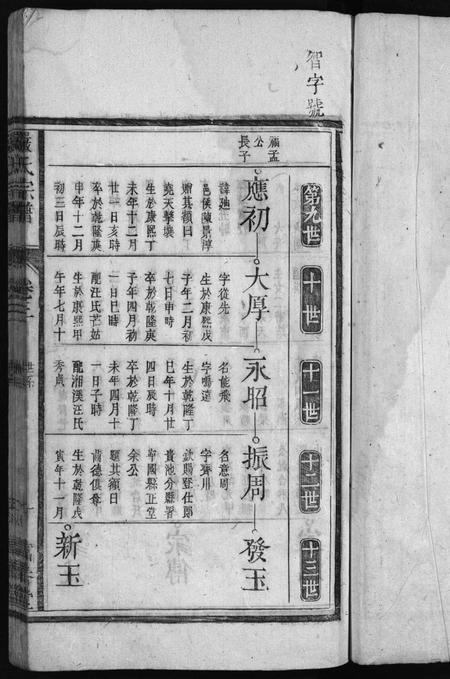 智字號
第九世
十世
十一世
十二世
十三世
孟
公
長子
應初
大厚
永昭
振周
發玉
新玉
諱廸
邑侯陳景淳
贈其額曰
堯天擊壤
生於康熙丁
未年十二月
廿一日亥時
卒於乾隆庚
申年十二月
初三日辰時
字從先
生於康熙戊
子年二月初
七日申時
卒於乾隆庚
子年四月初
一日巳時
配汪氏芒姑
生於康熙甲
午年七月十
名能飛
字鳴遠
生於乾隆丁
巳年十月廿
四日辰時
卒於乾隆丁
未年四月十
一日子時
配湘漢汪氏
秀貞
名意周
字舜川
欽賜登仕郎
貴池分縣署
寧國縣正堂
余公
題其額曰
齒德俱尊
生於乾隆戊
寅年十一月
嚴氏宗譜
卷之二
世系